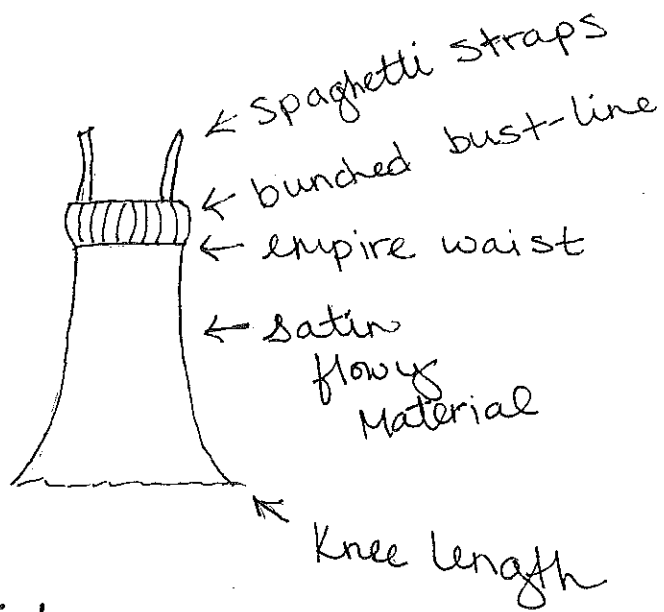 spaghetti straps
bunched bust-line
empire waist
satin
flowy
Material
Knee length